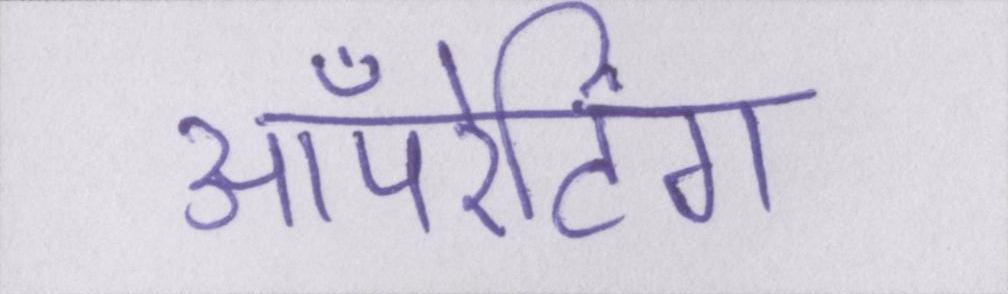 आँपरेटिंग